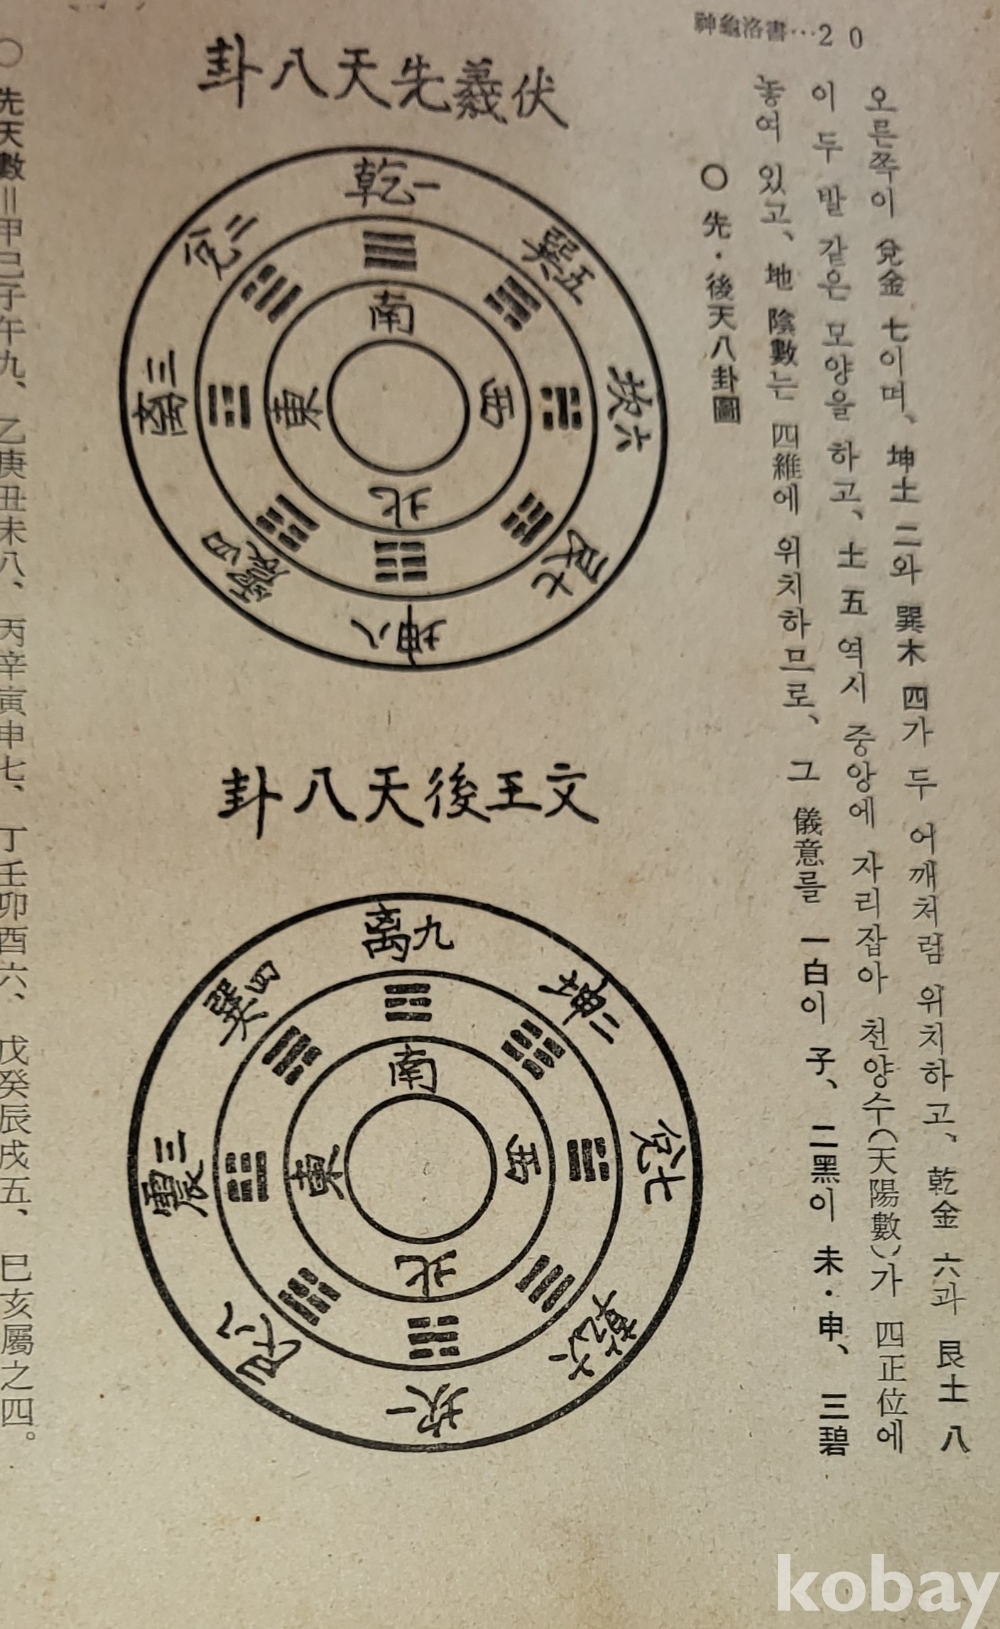 神龜洛書…20
오른쪽이 兌金 七이며、坤土 二와 巽木 四가 두 어깨처럼 위치하고、乾金 六과 艮土 八
이 두 발 같은 모양을 하고、土 五 역시 중앙에 자리잡아 천양수(天陽數)가 四正位에
놓여 있고、地 陰數는 四維에 위치하므로、그 儀意를 一白이 子、二黑이 未·申、三碧
○ 先·後天八卦圖
卦八天先羲伏
乾一
兌二
巽五
南
離三
東
西
坎六
北
震四
艮七
坤八
卦八天後王文
离九
巽四
坤二
南
震三
東
西
兌七
北
艮八
乾六
坎一
○ 先天數=甲己子午九、乙庚丑未八、丙辛寅申七、丁壬卯酉六、戊癸辰戌五、巳亥屬之四。
kobay